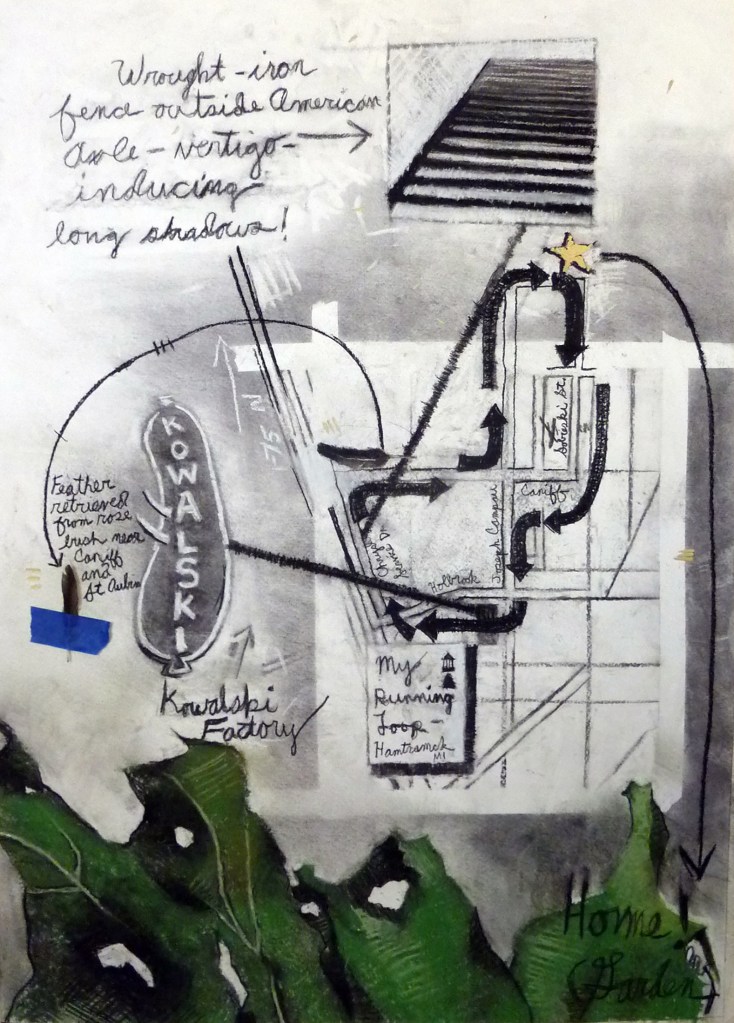 Wrought-iron
fence outside American
Axle - vertigo-
inducing
long shadows!
N
I-75
KOWALSKI
Feather
retrieved
from rose
bush near
Caniff
and
St Aubin
Kowalski
Factory
Sobieski St.
Caniff
Joseph Campau
Holbrook
My
Running
Loop -
Hamtramck
MI
Home!
(Garden)